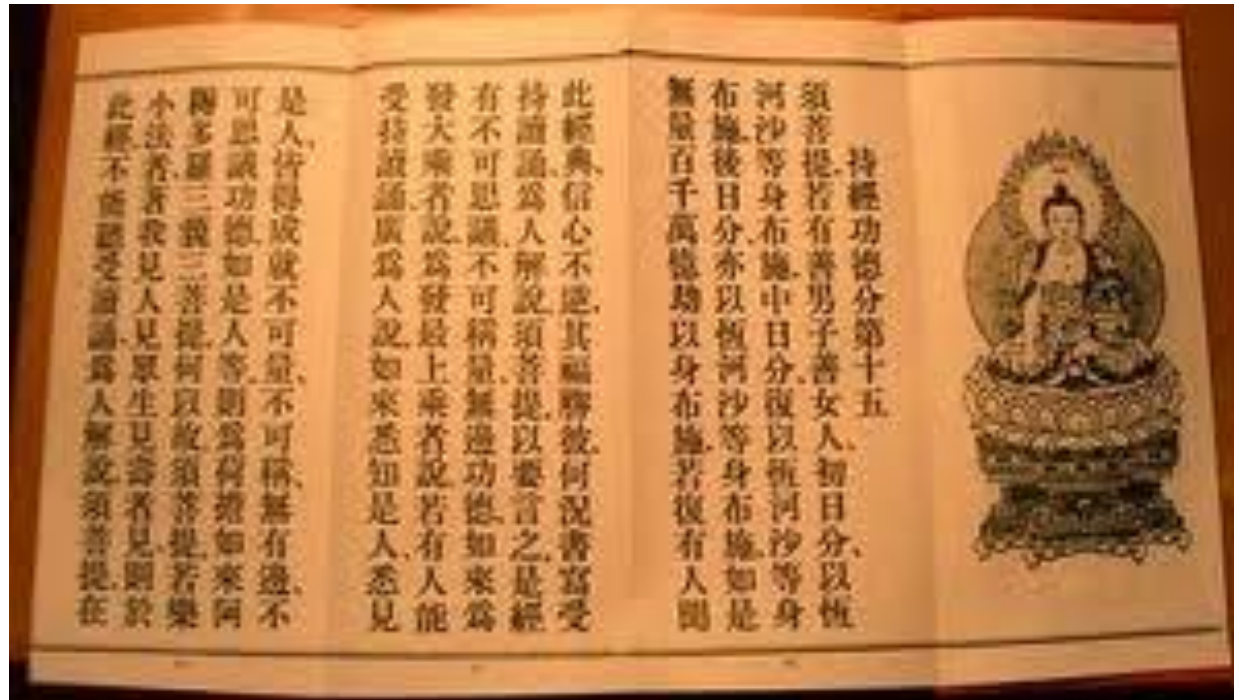 持經功德分第十五
須菩提、若有善男子善女人、初日分、以恆
河沙等身布施、中日分、復以恆河沙等身
布施、後日分、亦以恆河沙等身布施、如是
無量百千萬億劫以身布施、若復有人聞
此經典、信心不逆、其福勝彼、何況書寫受
持讀誦、爲人解說、須菩提、以要言之、是經
有不可思議、不可稱量、無邊功德、如來爲
發大乘者說、爲發最上乘者說、若有人能
受持讀誦、廣爲人說、如來悉知是人、悉見
是人、皆得成就不可量、不可稱、無有邊、不
可思議功德、如是人等、則爲荷擔如來阿
耨多羅三藐三菩提、何以故、須菩提、若樂
小法者、著我見人見眾生見壽者見、則於
此經、不能聽受讀誦、爲人解說、須菩提、在